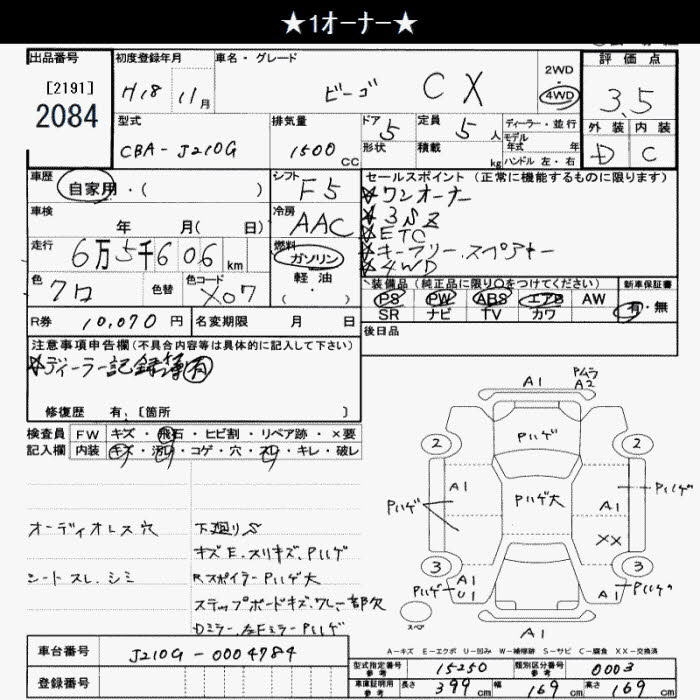 ★1オーナー★
出品番号
[2191]
2084
初度登録年月
H18 11月
車名・グレード
ビーゴ CX
2WD
4WD
評価点
3.5
外装 内装
D C
型式
CBA-J210G
排気量
1500 CC
ドア 5
形状
定員 5 人
積載 kg
ディーラー・並行
モデル
年式 年
ハンドル 左・右
車歴
自家用・( )
シフト
F5
車検
年 月( 日)
冷房
AAC
走行
6万5千606 km
燃料
ガソリン
軽油
( ・ )
色
クロ
色替
色コード
X07
R券 10,070 円
名変期限 月 日
セールスポイント (正常に機能するものに限ります)
★ワンオーナー
★3SZ
★ETC
★キーフリー.スペアキー
★4WD
装備品 (純正品に限り○をつけてください)
PS PW ABS エアB AW
SR ナビ TV カワ
新車保証書
有・無
後日品
注意事項申告欄 (不具合内容等は具体的に記入して下さい)
★ディーラー記録簿有
修復歴 有、[箇所 ]
検査員
記入欄
FW キズ・飛石・ヒビ割・リペア跡・×要
内装 キズ・汚れ・コゲ・穴・スレ・キレ・破レ
オーディオレス穴
シートスレ.シミ
下廻りS
キズE.スリキズ.Pハゲ
RスポイラーPハゲ大
ステップボードキズ.ワレ一部欠
Dミラー.左FミラーPハゲ
A1
Pムラ
A2
Pハゲ
2
2
A1
Pハゲ
Pハゲ大
A1
Pハゲ
XX
3
3
A1
U1
Pハゲ
A1
Pハゲ
スペア
A1
A-キズ E-エクボ U-凹み W-補修跡 S-サビ C-腐食 XX-交換済
車台番号
J210G-0004784
登録番号
型式指定番号
参考
15250
類別区分番号
参考
0003
車庫証明用
参考
長さ 399 cm
幅 169 cm
高さ 169 cm